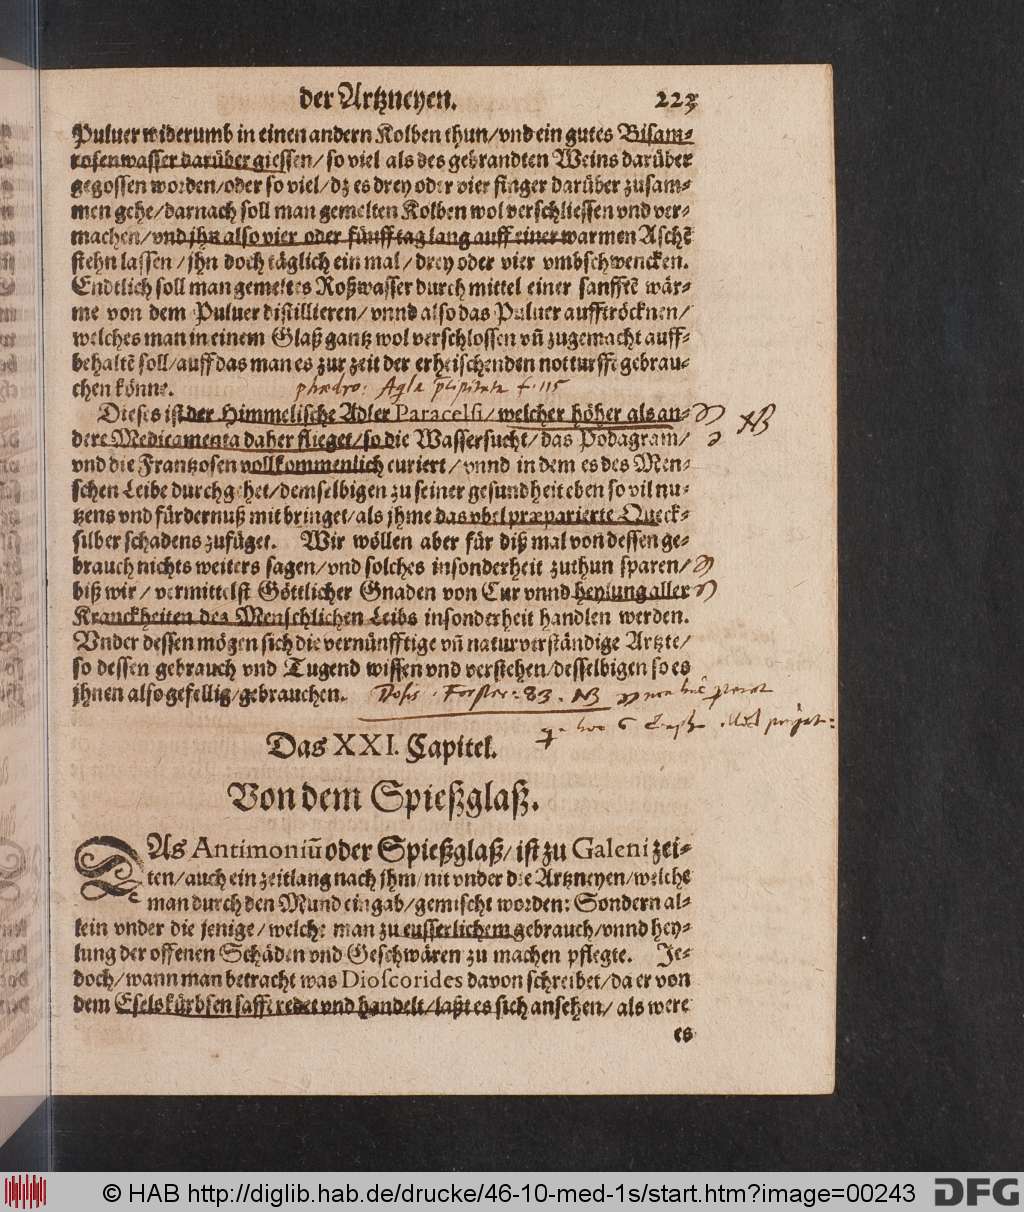 der Artzneyen. 223
Puluer widerumb in einen andern Kolben thun/vnd ein gutes Bisam-
rosenwasser darüber giessen/ so viel als des gebrandten Weins darüber
gegossen worden/oder so viel/dz es drey oder vier finger darüber zusam-
men gehe/darnach soll man gemelten Kolben wol verschliessen vnd ver-
machen/vnd jhn also vier oder fünff tag lang auff einer warmen Aschē
stehn lassen/jhn doch täglich ein mal/drey oder vier vmbschwencken.
Endtlich soll man gemeltes Roßwasser durch mittel einer sanfftē wär-
me von dem Puluer distillieren/vnnd also das Puluer aufftröcknen/
welches man in einem Glaß gantz wol verschlossen vñ zugemacht auff-
behaltē soll/auff das man es zur zeit der erheischenden notturfft gebrau-
chen könne.
phædro. Aqla f. 115
Dieses ist der Himmelische Adler Paracelsi/welcher höher als an-
dere Medicamenta daher flieget/so die Wassersucht/das Podagram/
vnd die Frantzosen vollkommenlich curiert/vnnd in dem es des Men-
schen Leibe durchgehet/demselbigen zu seiner gesundheit eben so vil nu-
tzens vnd fürdernuß mit bringet/als jhme das vbel præparierte Queck-
silber schadens zufüget. Wir wöllen aber für diß mal von dessen ge-
brauch nichts weiters sagen/vnd solches insonderheit zuthun sparen/
biß wir/vermittelst Göttlicher Gnaden von Cur vnnd heylung aller
Kranckheiten des Menschlichen Leibs insonderheit handlen werden.
Vnder dessen mögen sich die vernünfftige vñ naturverständige Artzte/
so dessen gebrauch vnd Tugend wissen vnd verstehen/desselbigen so es
jhnen also gefellig/gebrauchen.
Dosis. Forster: 83. NB
Das XXI. Capitel.
Von dem Spießglaß.
DAs Antimoniū oder Spießglaß/ist zu Galeni zei-
ten/auch ein zeitlang nach jhm/nit vnder die Artzneyen/welche
man durch den Mund eingab/gemischt worden: Sondern al-
lein vnder die jenige/welche man zu eusserlichem gebrauch/vnnd hey-
lung der offenen Schäden vnd Geschwären zu machen pflegte. Je-
doch/wann man betracht was Dioscorides davon schreibet/da er von
dem Eselskürbsen safft redet vnd handelt/laßt es sich ansehen/als were
es
© HAB http://diglib.hab.de/drucke/46-10-med-1s/start.htm?image=00243 DFG